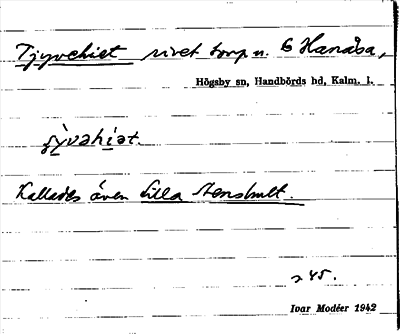 Tjyvehiet rivet torp u. 6 Hanåsa,
Högsby sn, Handbörds hd, Kalm. l.
Kallades även Lilla Stenshult.
245.
Ivar Modéer 1942